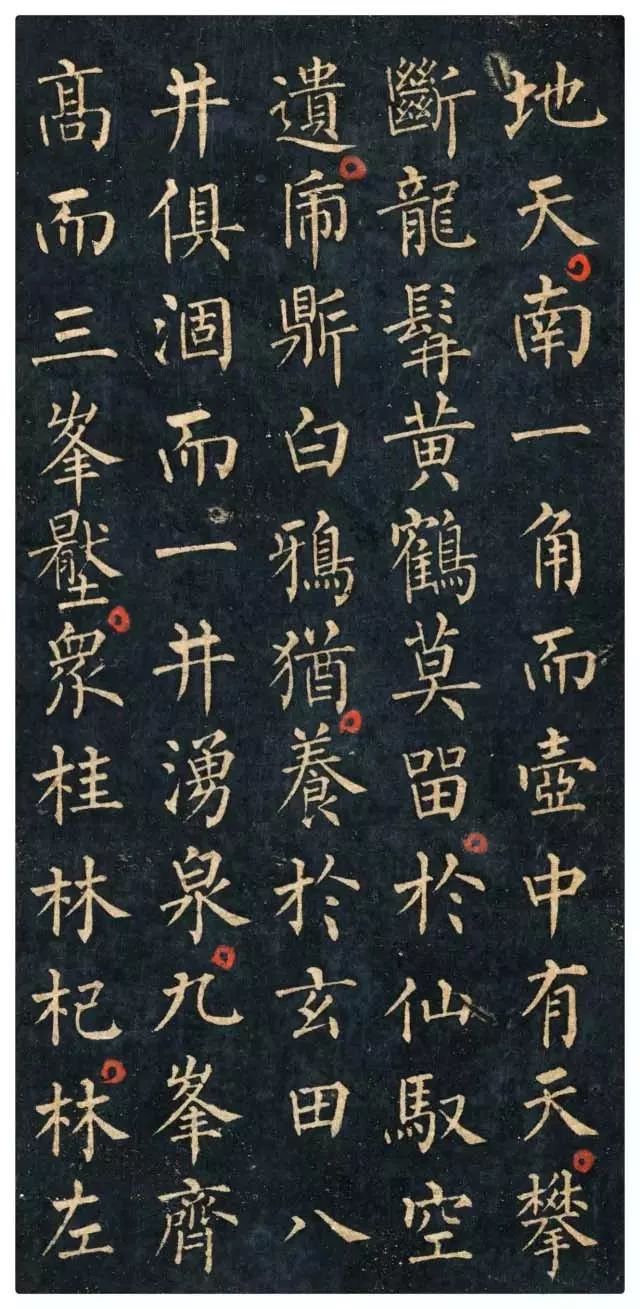 地天南一角而壺中有天攀
斷龍髯黄鶴莫留於仙馭空
遺鼎白鵶猶養於玄田八
井俱涸而一井湧泉九峯齊
髙而三峯壓衆桂林杞林左